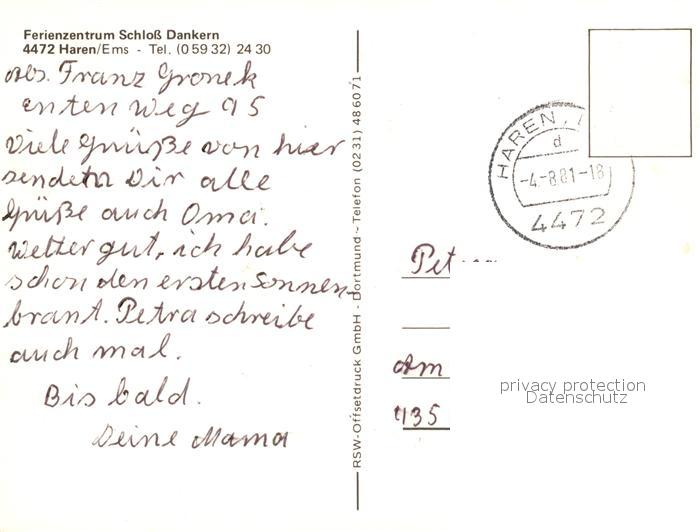 Ferienzentrum Schloß Dankern
4472 Haren/Ems - Tel. (0 59 32) 24 30
Abs. Franz Gronek
enten Weg 95
Viele Grüße von hier
sendetn Dir alle
Grüße auch Oma.
Wetter gut, ich habe
schon den ersten Sonnen-
brant. Petra schreibe
auch mal.
Bis bald.
Deine Mama
RSW-Offsetdruck GmbH - Dortmund - Telefon (02 31) 48 60 71
HAREN,
d
-4.-8.81-18
4472
Pet
Am
435
privacy protection
Datenschutz